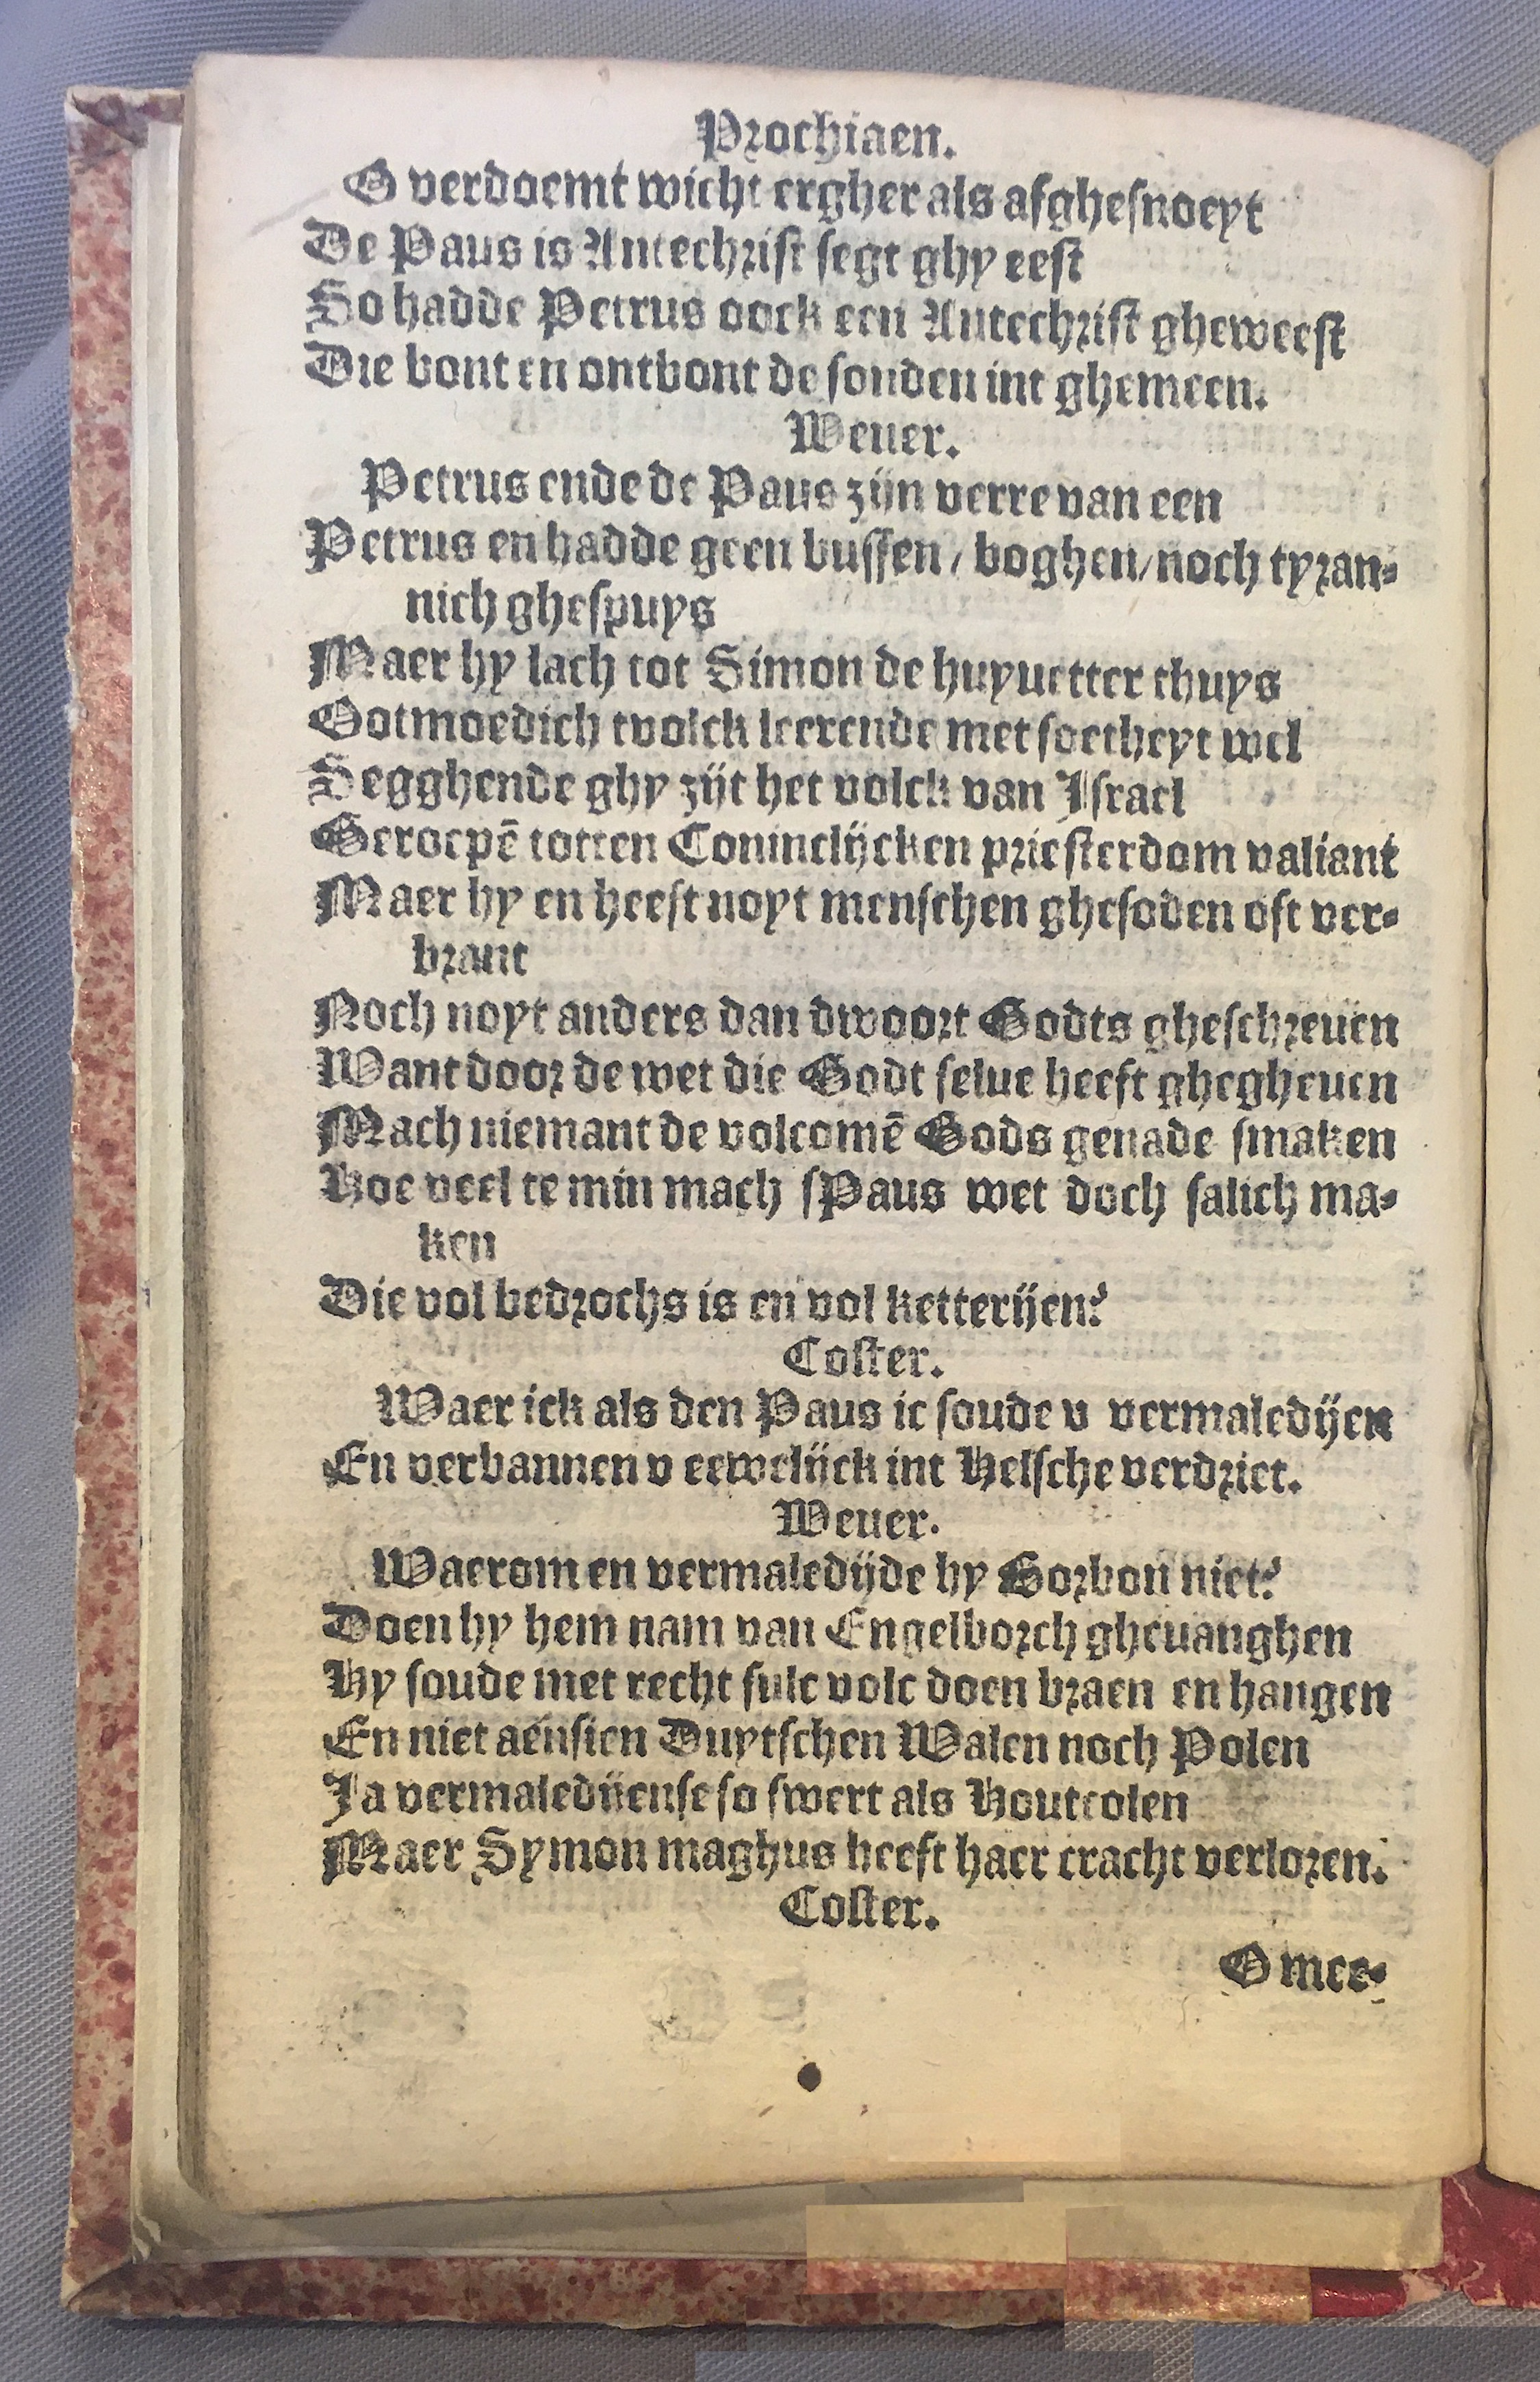 Prochiaen.
O verdoemt wicht ergher als afghesnoeyt
De Paus is Antechrist segt ghy eest
So hadde Petrus oock een Antechrist gheweest
Die bont en ontbont de sonden int ghemeen.
Weuer.
Petrus ende de Paus zijn verre van een
Petrus en hadde geen bussen / boghen / noch tyran-
nich ghespuys
Maer hy lach tot Simon de huyuetter thuys
Ootmoedich tvolck leerende met soetheyt wel
Segghende ghy zijt het volck van Israel
Geroepē totten Coninclijcken priesterdom valiant
Maer hy en heeft noyt menschen ghesoden oft ver-
brant
Noch noyt anders dan dwoort Godts gheschreuen
Want door de wet die Godt selue heeft ghegheuen
Mach niemant de volcomē Gods genade smaken
Hoe veel te min mach sPaus wet doch salich ma-
ken
Die vol bedrochs is en vol ketterijen?
Coster.
Waer ick als den Paus ic soude v vermaledijen
En verbannen v eewelijck int Helsche verdriet.
Weuer.
Waerom en vermaledijde hy Borbon niet?
Doen hy hem nam van Engelborch gheuanghen
Hy soude met recht sulc volc doen braen en hangen
En niet aensien Duytschen Walen noch Polen
Ja vermaledijense so swert als Houtcolen
Maer Symon maghus heeft haer cracht verloren.
Coster.
O mee-